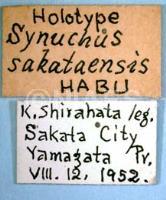 Holotype
Synuchus
sakataensis
HABU
K. Shirahata leg.
Sakata City
Yamagata Pr.
VIII. 12, 1952.